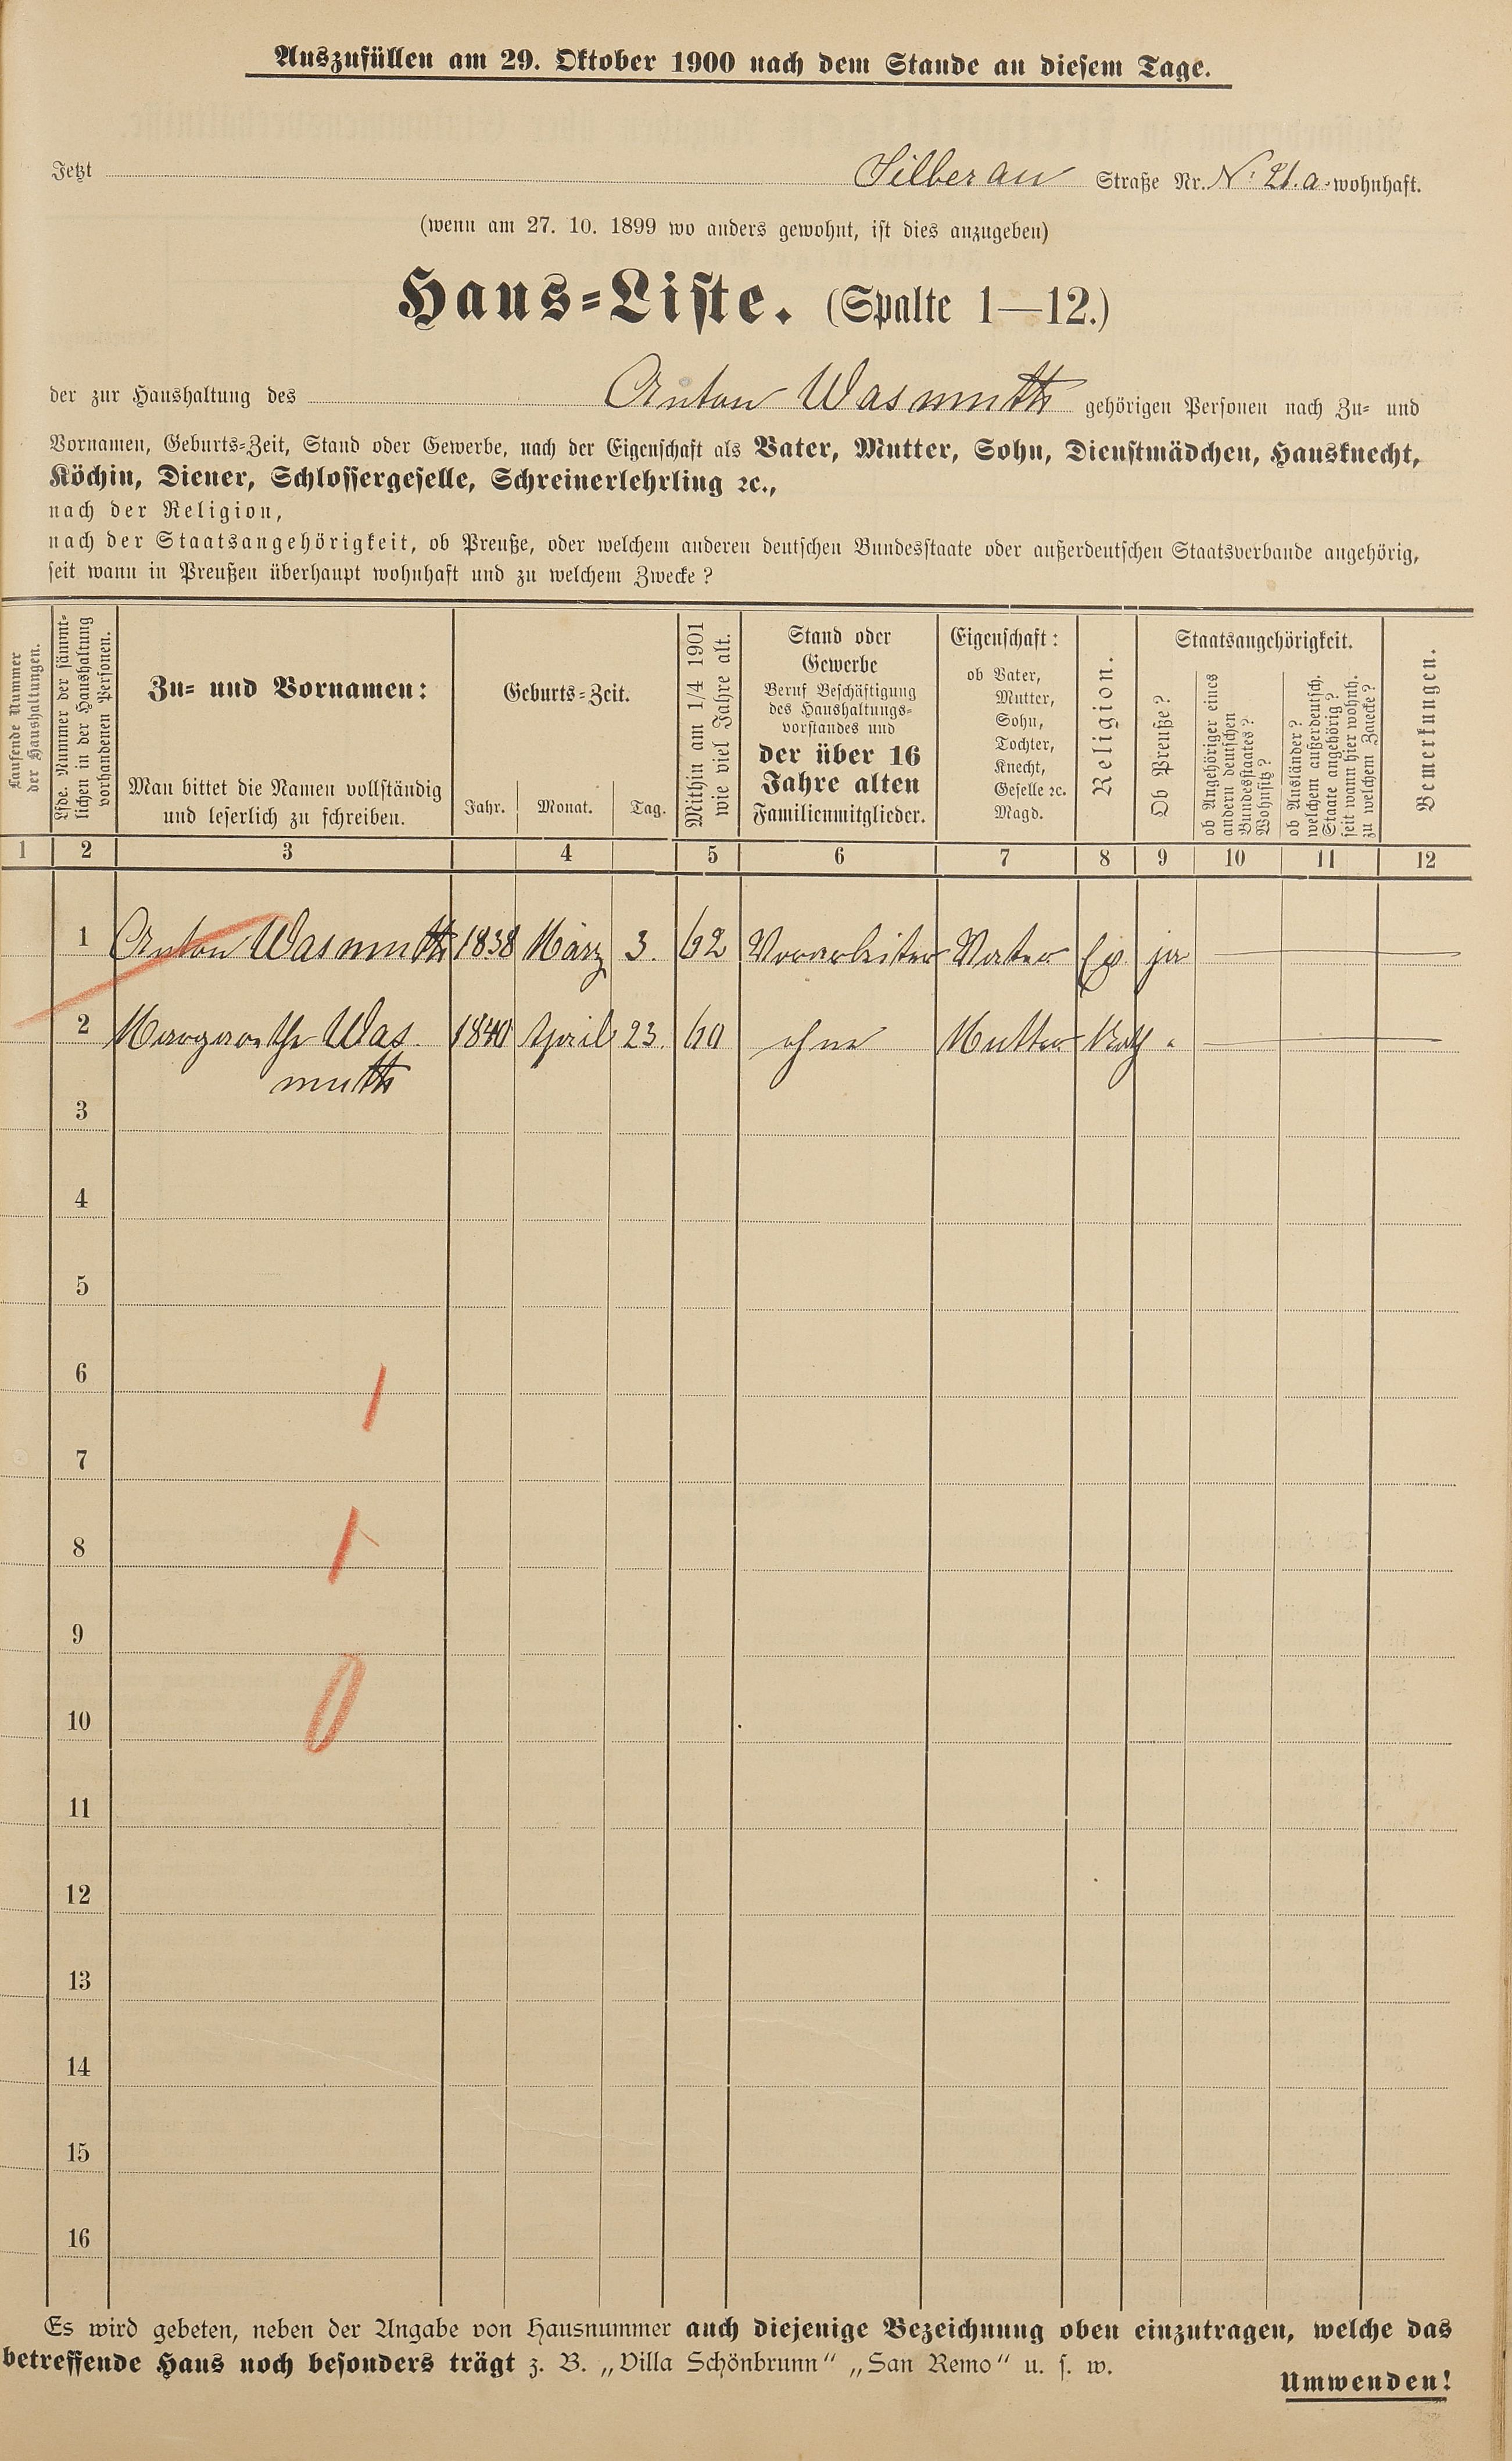 Auszufüllen am 29. Oktober 1900 nach dem Stande an diesem Tage.
Jetzt Silberau Straße Nr. N. 21. a. wohnhaft.
(wenn am 27. 10. 1899 wo anders gewohnt, ist dies anzugeben)
Haus-Liste. (Spalte 1—12.)
der zur Haushaltung des Anton Wasmuth gehörigen Personen nach Zu- und
Vornamen, Geburts-Zeit, Stand oder Gewerbe, nach der Eigenschaft als Vater, Mutter, Sohn, Dienstmädchen, Hausknecht,
Köchin, Diener, Schlossergeselle, Schreinerlehrling ꝛc.,
nach der Religion,
nach der Staatsangehörigkeit, ob Preuße, oder welchem anderen deutschen Bundesstaate oder außerdeutschen Staatsverbande angehörig,
seit wann in Preußen überhaupt wohnhaft und zu welchem Zwecke?
Laufende Nummer
der Haushaltungen.
Lfde. Nummer der sämmt-
lichen in der Haushaltung
vorhandenen Personen.
Zu- und Vornamen:
Man bittet die Namen vollständig
und leserlich zu schreiben.
Geburts-Zeit.
Jahr. Monat. Tag.
Mithin am 1/4 1901
wie viel Jahre alt.
Stand oder
Gewerbe
Beruf Beschäftigung
des Haushaltungs-
vorstandes und
der über 16
Jahre alten
Familienmitglieder.
Eigenschaft:
ob Vater,
Mutter,
Sohn,
Tochter,
Knecht,
Geselle ꝛc.
Magd.
Religion.
Staatsangehörigkeit.
Ob Preuße?
ob Angehöriger eines
andern deutschen
Bundesstaates?
Wohnsitz?
ob Ausländer?
welchem außerdeutsch.
Staate angehörig?
seit wann hier wohnh.
zu welchem Zwecke?
Bemerkungen.
1 2 3 4 5 6 7 8 9 10 11 12
1 Anton Wasmuth 1838 März 3. 62 Vorarbeiter Vater Ev. ja
2 Margarethe Was. 1840 April 23. 60 ohne Mutter Kath "
muth
3
4
5
6
7
8
9
10
11
12
13
14
15
16
Es wird gebeten, neben der Angabe von Hausnummer auch diejenige Bezeichnung oben einzutragen, welche das
betreffende Haus noch besonders trägt z. B. „Villa Schönbrunn“ „San Remo“ u. s. w.
Umwenden!